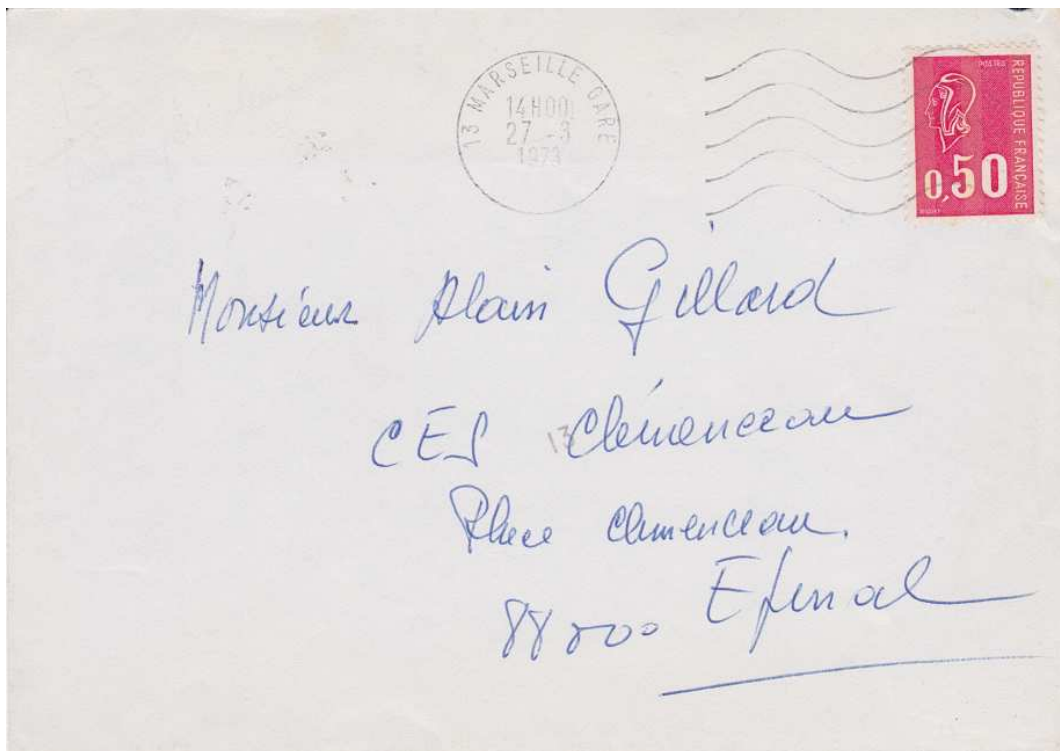 13 MARSEILLE GARE
14H00
27 -3
1973
POSTES
REPUBLIQUE FRANÇAISE
0,50
Monsieur Alain Gillard
CES Clémenceau
13
Place Clemenceau.
88000 Epinal